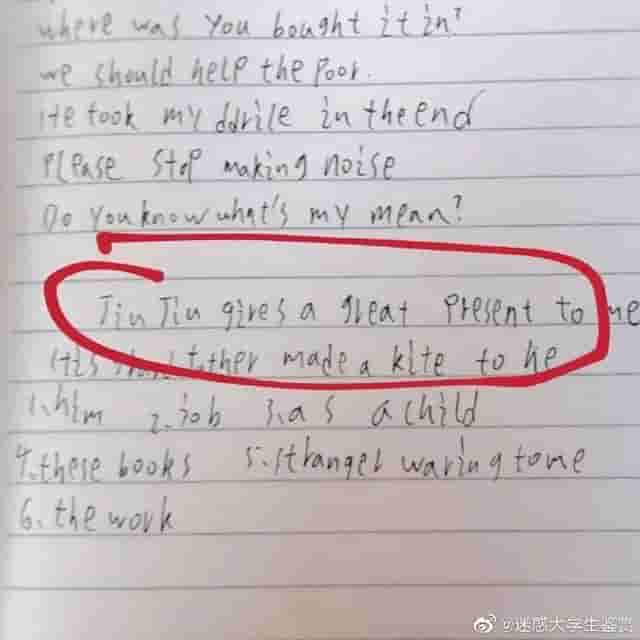 where was you bought it in?
we should help the poor.
He took my ddrile in the end
Please stop making noise
Do you know what's my mean?
Jiu Jiu gives a great present to me
father made a kite to he
1.him 2.job 3.as a child
4.these books 5.stranger waring to me
6.the work
@迷惑大学生鉴赏